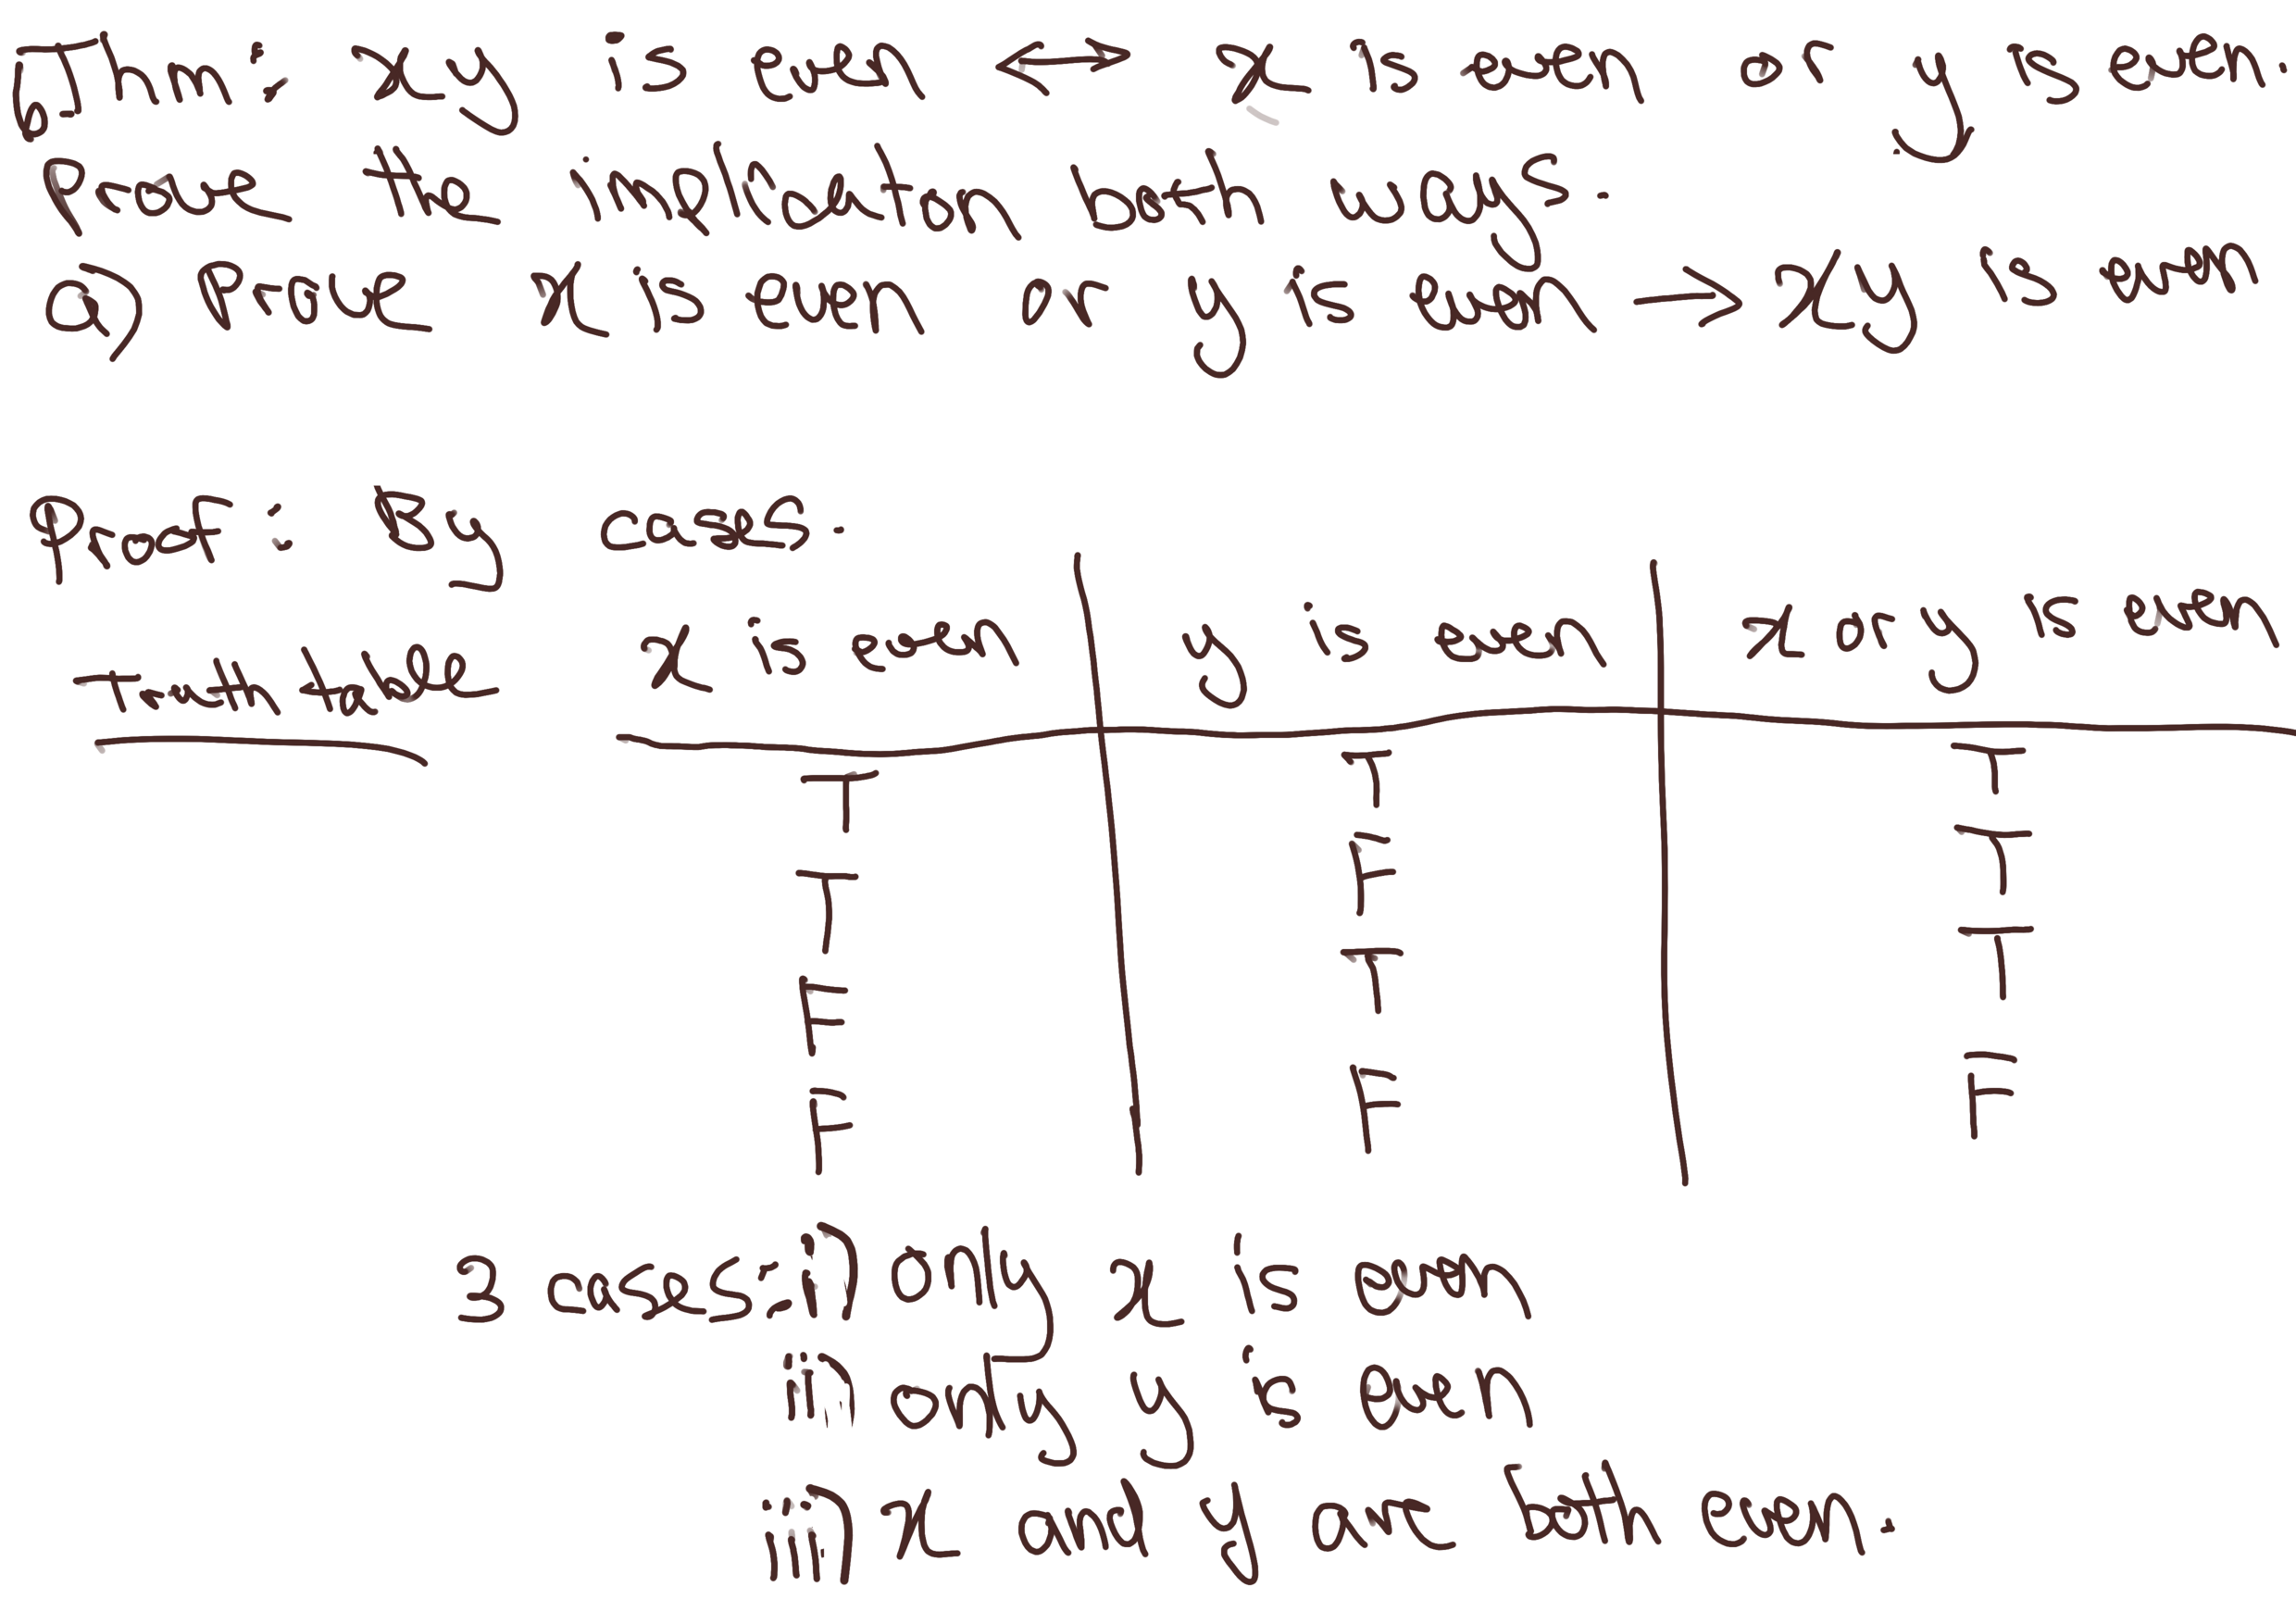 Thm: xy is even ⟺ x is even or y is even.
Prove the implication both ways.
a) Prove x is even or y is even → xy is even
Proof: By cases.
Truth table
x is even | y is even | x or y is even
T | T | T
T | F | T
F | T | T
F | F | F
3 cases: i) only x is even
ii) only y is even
iii) x and y are both even.